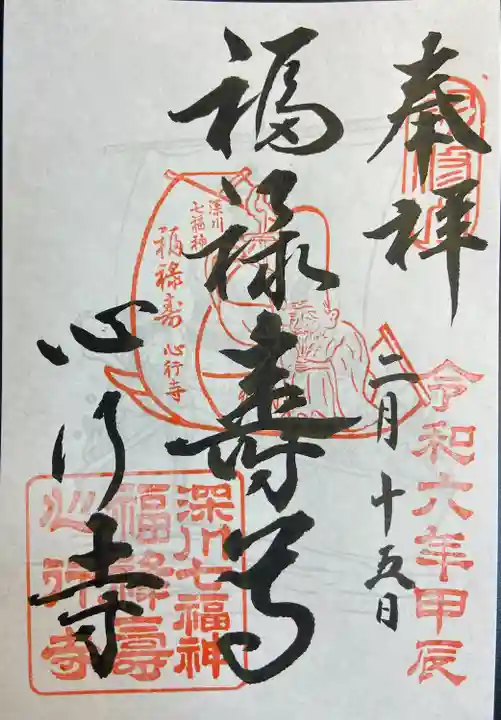 奉拝
令和六年甲辰
二月十五日
福禄寿尊
深川
七福神
福禄寿
心行寺
心行寺
深川七福神
福祿壽
心行寺